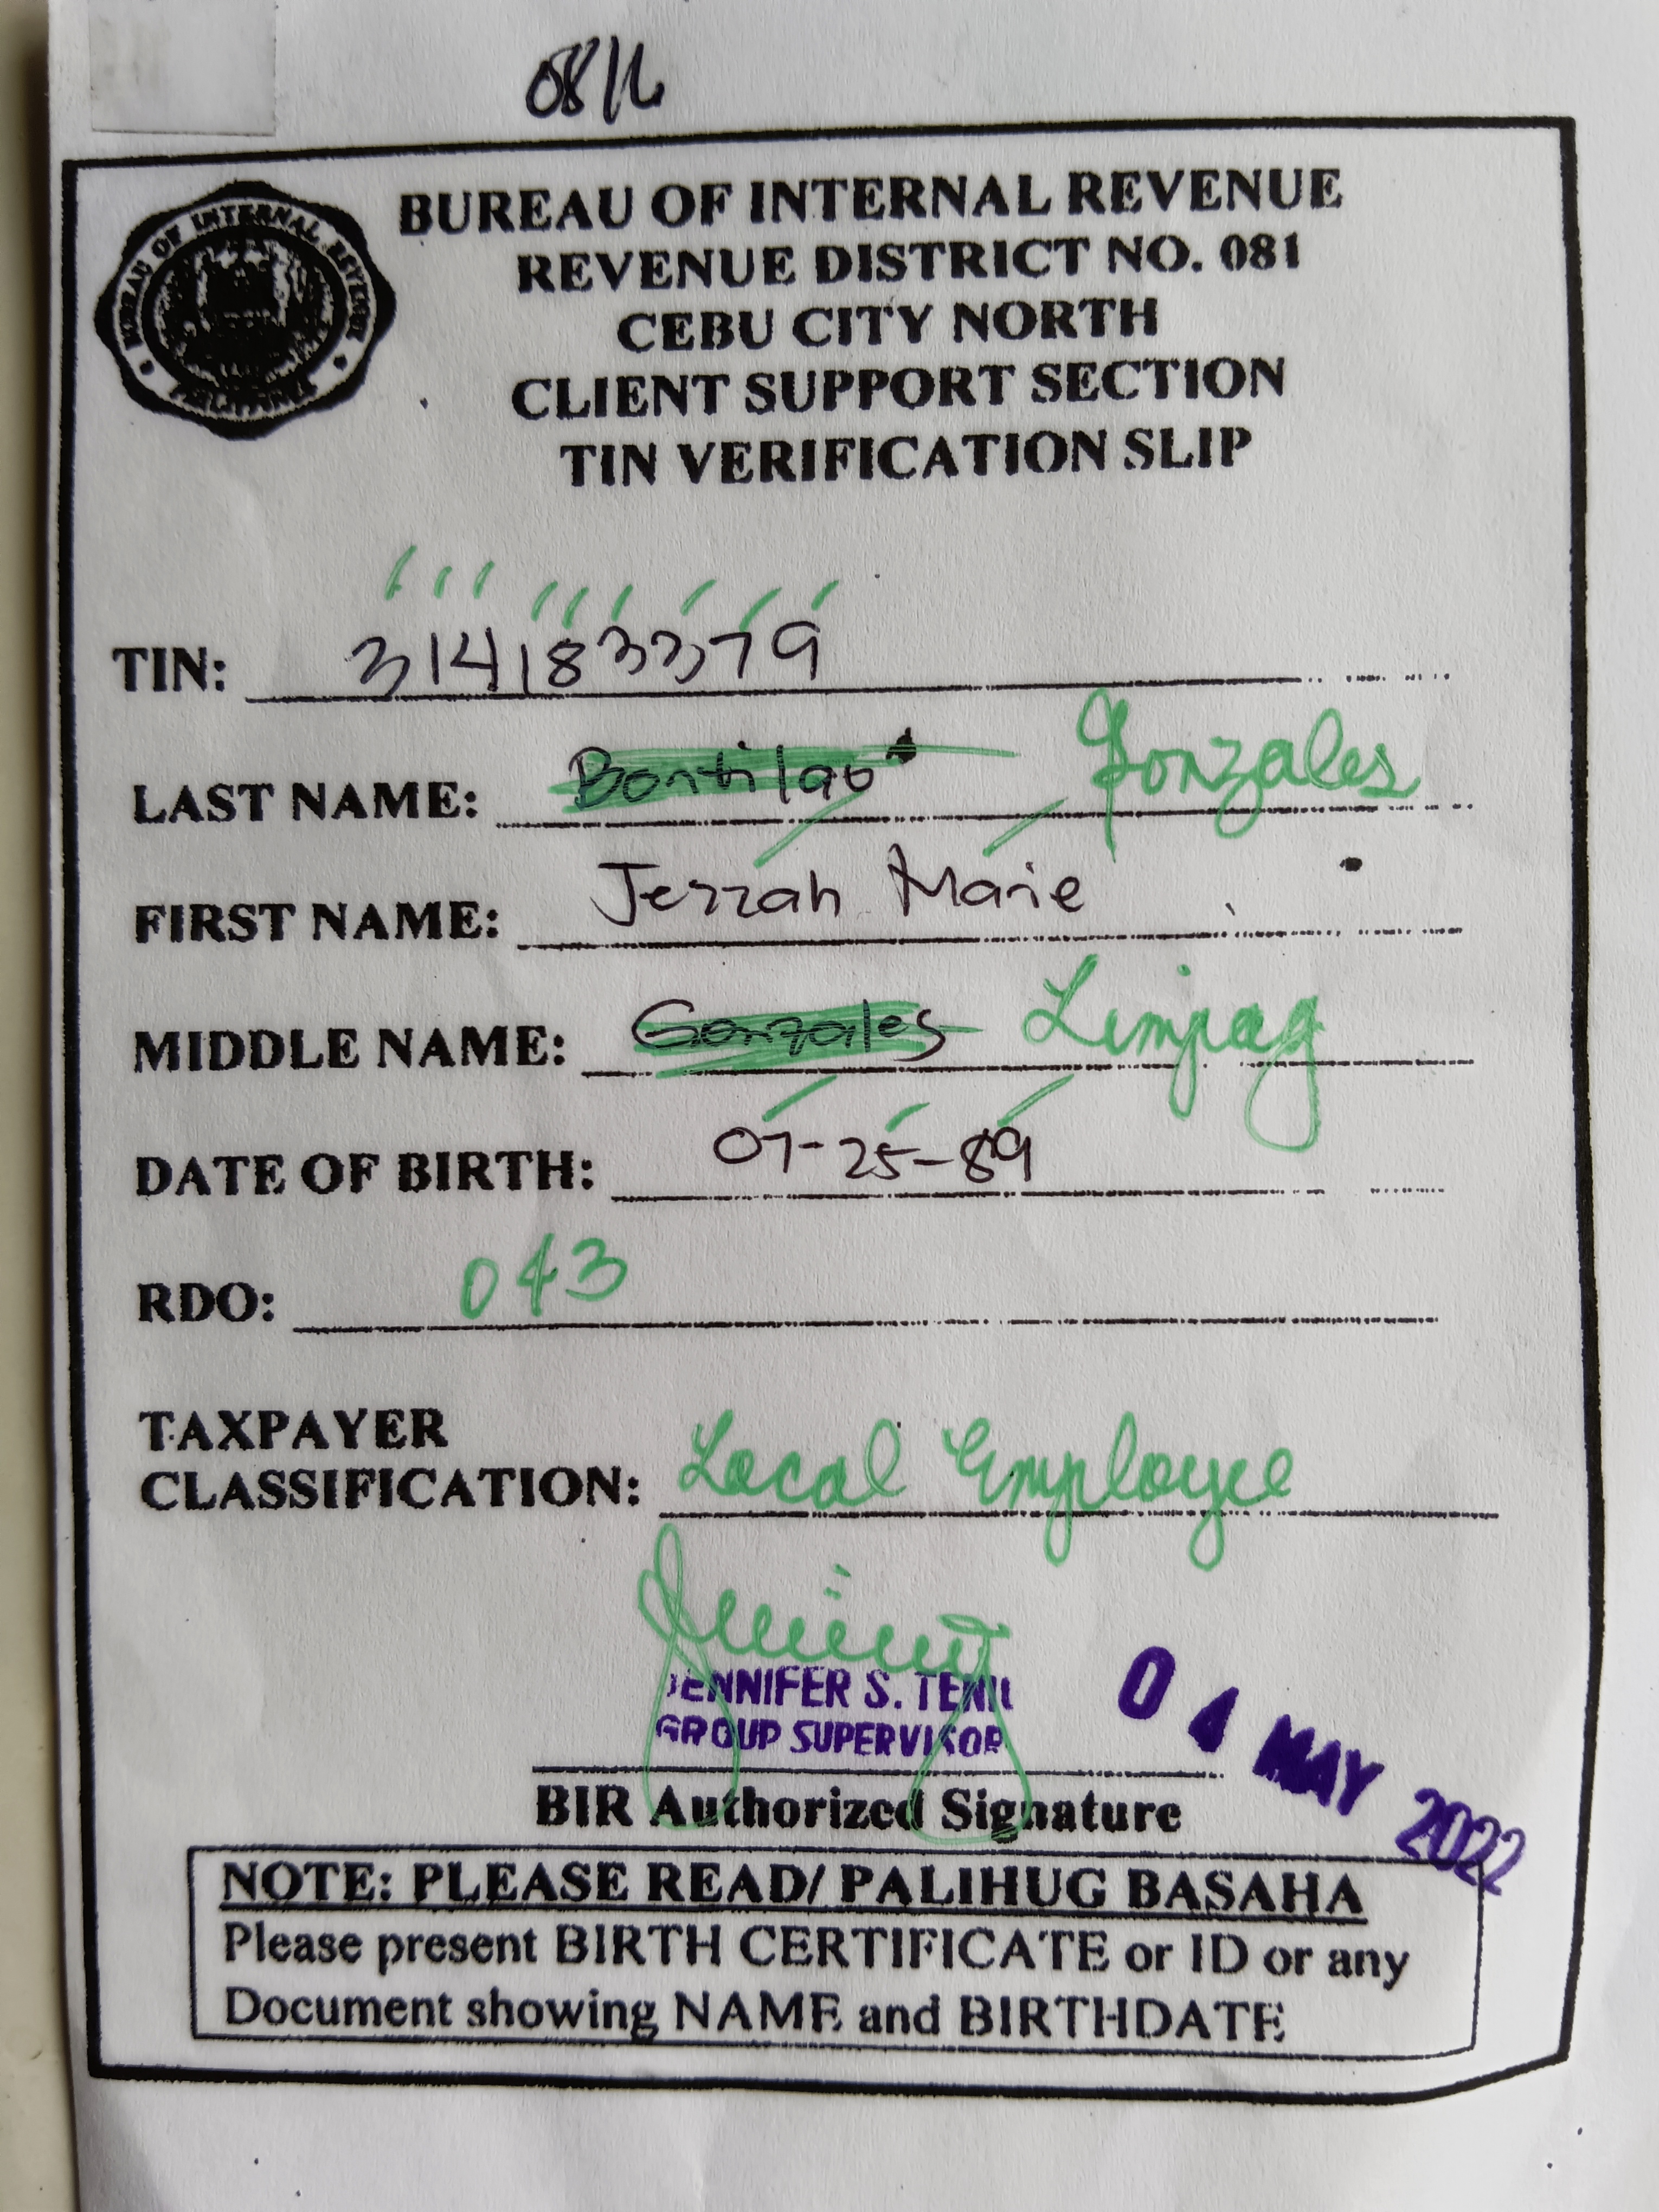 BUREAU OF INTERNAL REVENUE
REVENUE DISTRICT NO. 081
CEBU CITY NORTH
CLIENT SUPPORT SECTION
TIN VERIFICATION SLIP
BUREAU OF INTERNAL REVENUE
TIN: 314183379
LAST NAME: Bontilao Gonzales
FIRST NAME: Jerzah Marie
MIDDLE NAME: Gonzales Limpag
DATE OF BIRTH: 07-25-89
RDO: 043
TAXPAYER
CLASSIFICATION: Local Employee
JENNIFER S.
GROUP SUPERVISOR
04 MAY 2022
BIR Authorized Signature
NOTE: PLEASE READ/ PALIHUG BASAHA
Please present BIRTH CERTIFICATE or ID or any
Document showing NAME and BIRTHDATE